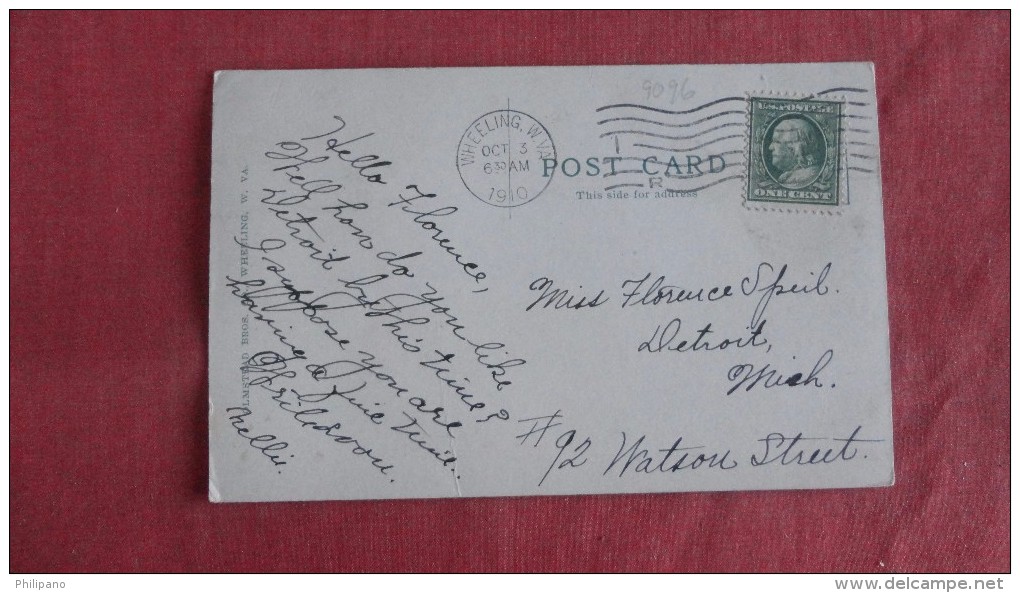 9096
WHEELING, W. VA.
OCT 3
6 30 AM
1910
T
R
U.S. POSTAGE
ONE CENT
POST CARD
This side for address
Hello Florence,
Well how do you like
Detroit by this time?
I suppose you are
having a fine time.
Write soon.
Nellie.
Miss Florence Speil.
Detroit,
Mich.
#92 Watson Street.
LMSTEAD BROS. WHEELING, W. VA.
Philipano
www.delcampe.net